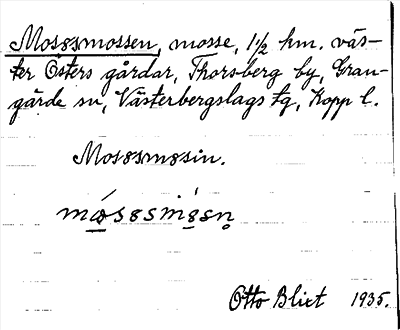 Mosɞsmossen, mosse, 1½ km. väs-
ter Östers gårdar, Thorsberg by, Gran-
gärde sn, Västerbergslags tg, Kopp l.
Mosɞsmɞsin.
Otto Blixt 1935.